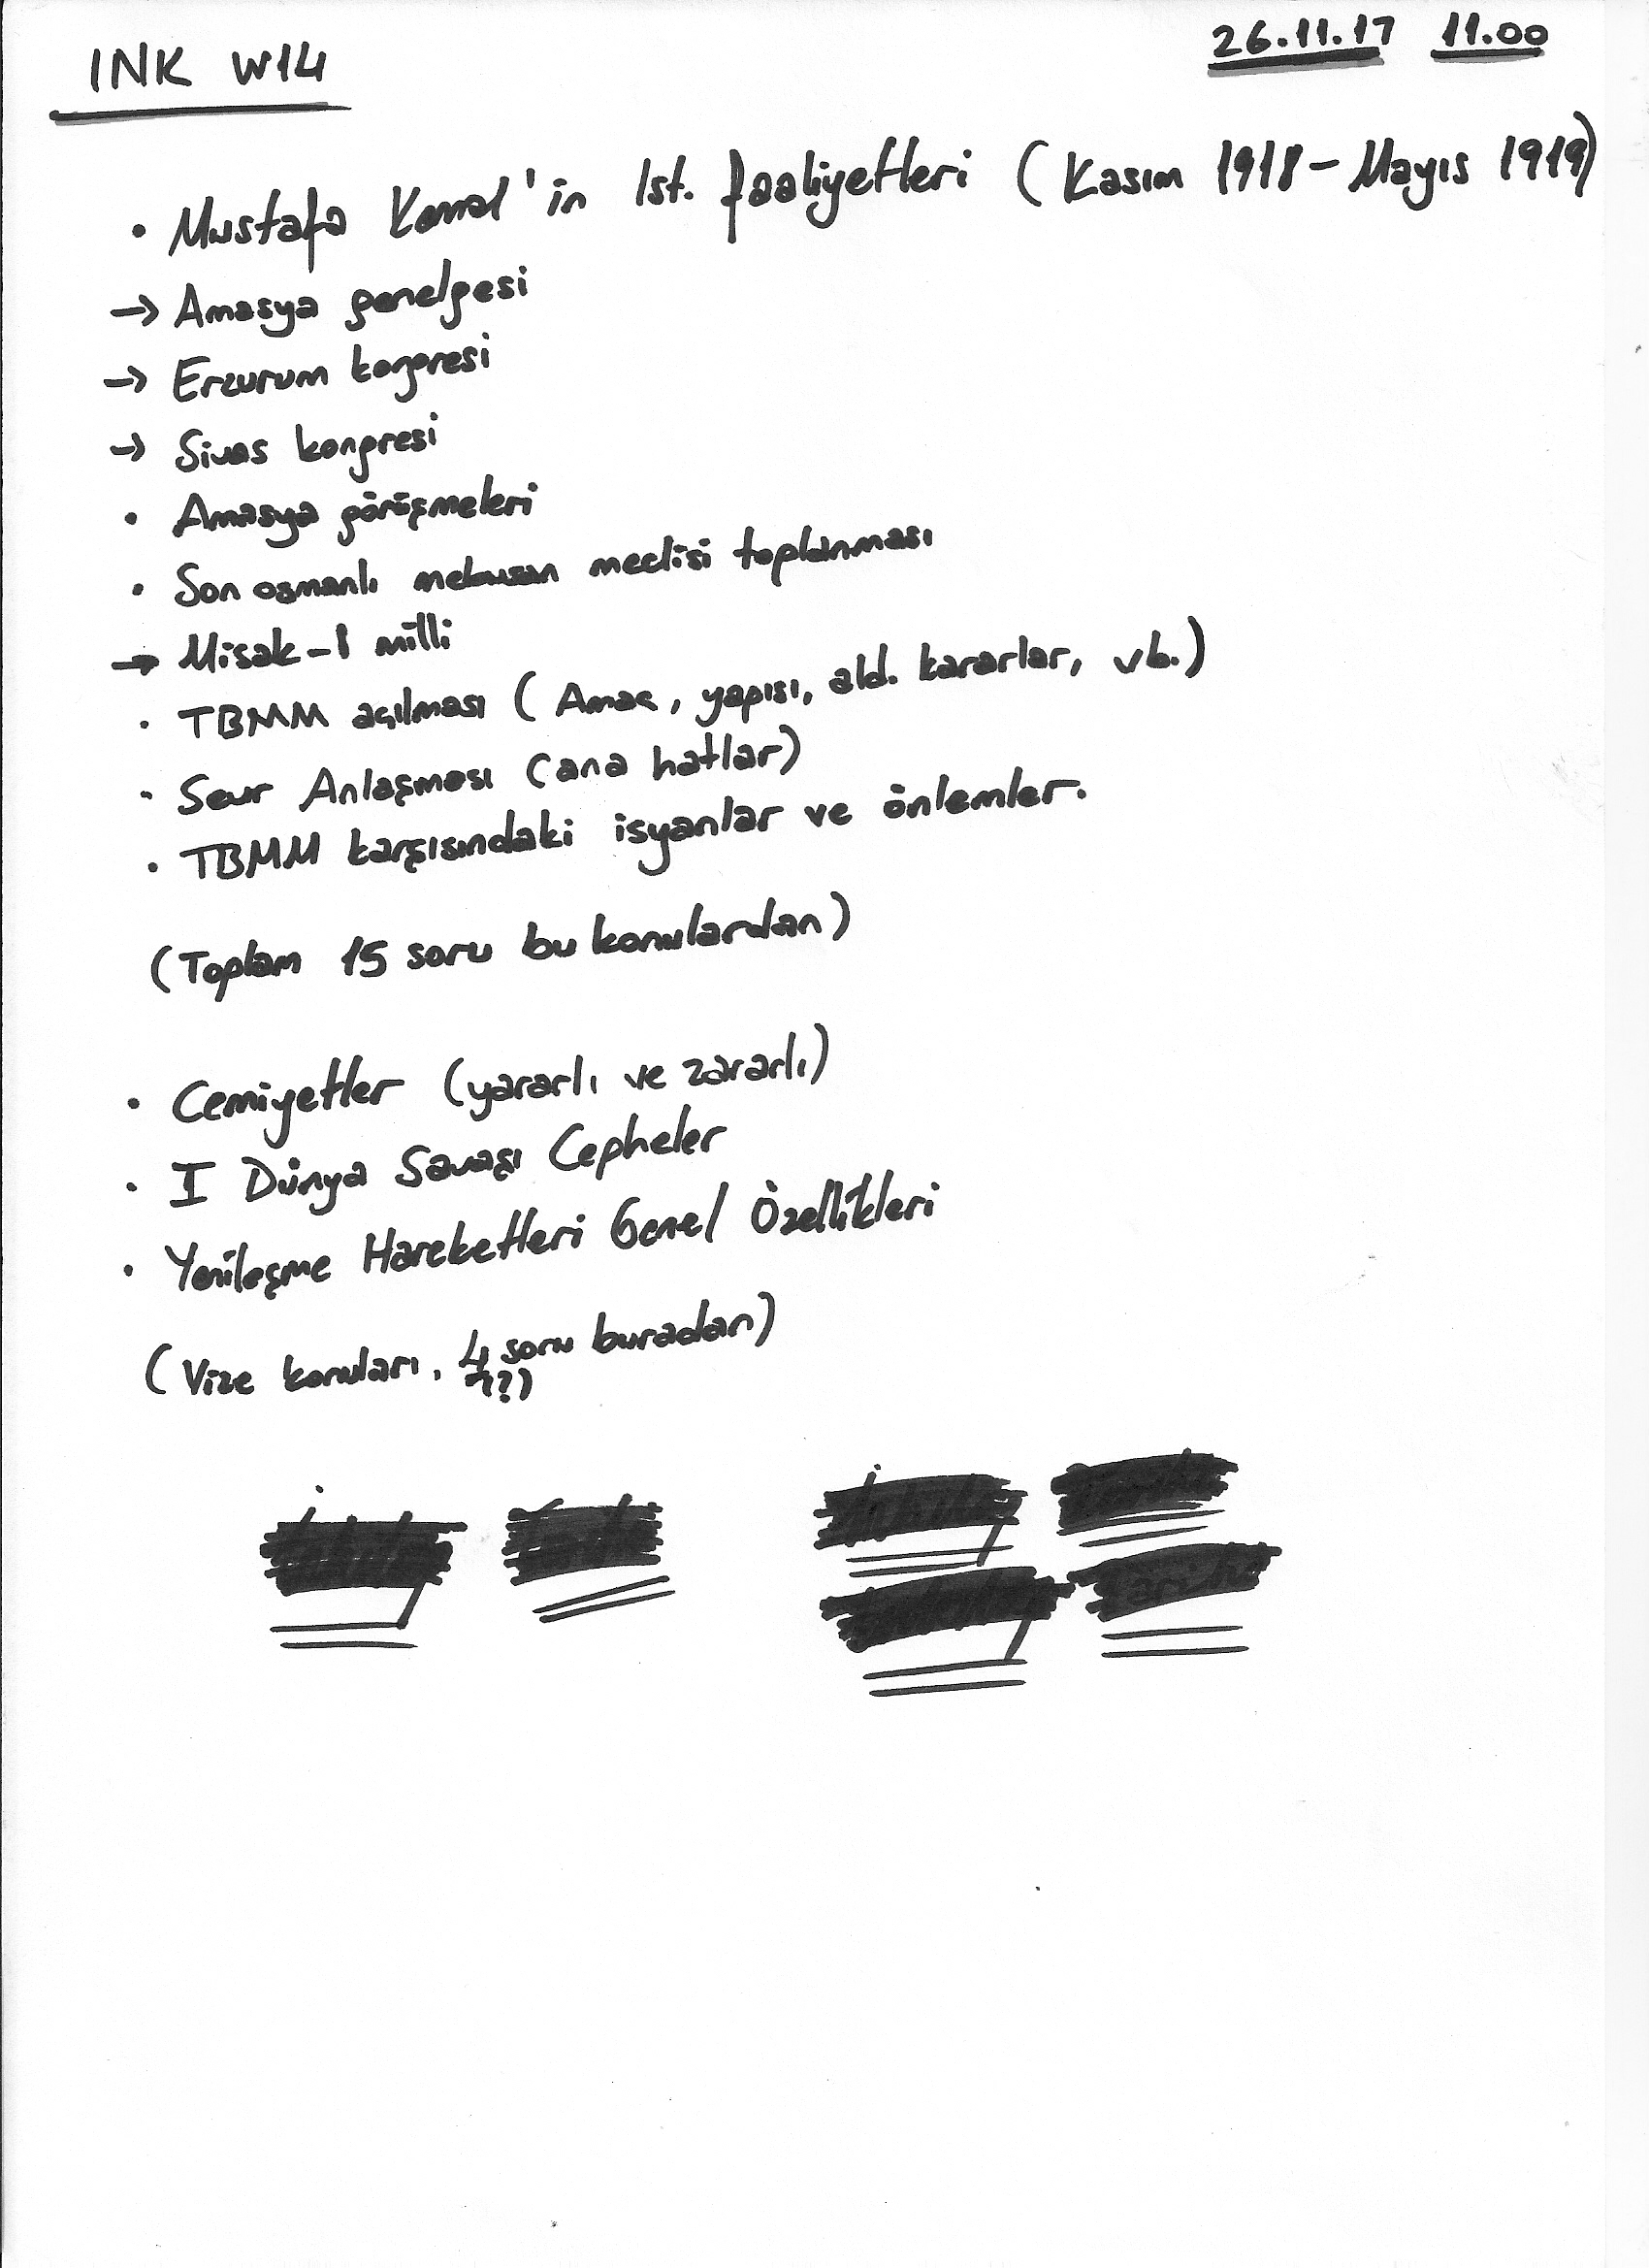 INK W14
26.11.17 11.00
• Mustafa Kemal'in Ist. faaliyetleri (Kasım 1918 - Mayıs 1919)
→ Amasya genelgesi
→ Erzurum kongresi
→ Sivas kongresi
• Amasya görüşmeleri
• Son osmanlı mebusan meclisi toplanması
→ Misak-I milli
• TBMM açılması (Amaç, yapısı, ald. kararlar, vb.)
• Sevr Anlaşması (ana hatlar)
• TBMM karşısındaki isyanlar ve önlemler.
(Toplam 15 soru bu konulardan)
• Cemiyetler (yararlı ve zararlı)
• I Dünya Savaşı Cepheler
• Yenileşme Hareketleri Genel Özellikleri
(Vize konuları, 4 soru buradan)